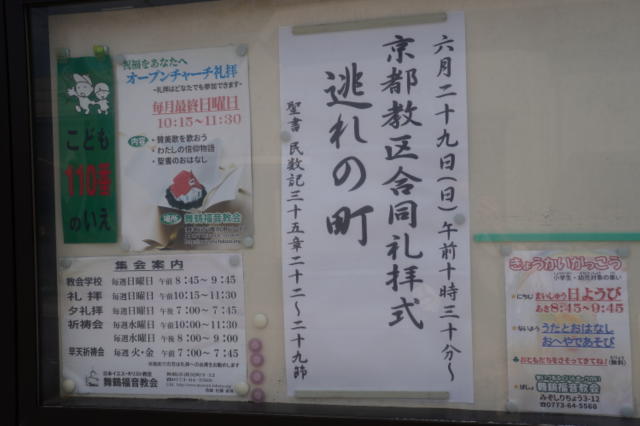 こども
110番
のいえ
祝福をあなたへ
オープンチャーチ礼拝
~礼拝はどなたでも参加できます~
毎月最終日曜日
10:15~11:30
内容
・賛美歌を歌おう
・わたしの信仰物語
・聖書のおはなし
場所
舞鶴福音教会
六月二十九日(日)午前十時三十分~
京都教区合同礼拝式
逃れの町
聖書 民数記三十五章二十二~二十九節
集会案内
教会学校 毎週日曜日 午前 8:45~9:45
礼拝 毎週日曜日 午前10:15~11:30
夕礼拝 毎週日曜日 午後 7:00~7:45
祈祷会 毎週水曜日 午前10:00~11:30
毎週水曜日 午後 8:00~9:00
早天祈祷会 毎週火・金 午前 7:00~7:45
日本イエス・キリスト教団
舞鶴福音教会
0773-64-5568
きょうかいがっこう
小学生・幼児対象の集い
にちじ
まいしゅう日ようび
あさ8:45~9:45
ないよう
うたとおはなし
おへやであそび
おともだちをさそってきてね!
(無料)
ばしょ
舞鶴福音教会
みそしりちょう3-12
☎0773-64-5568